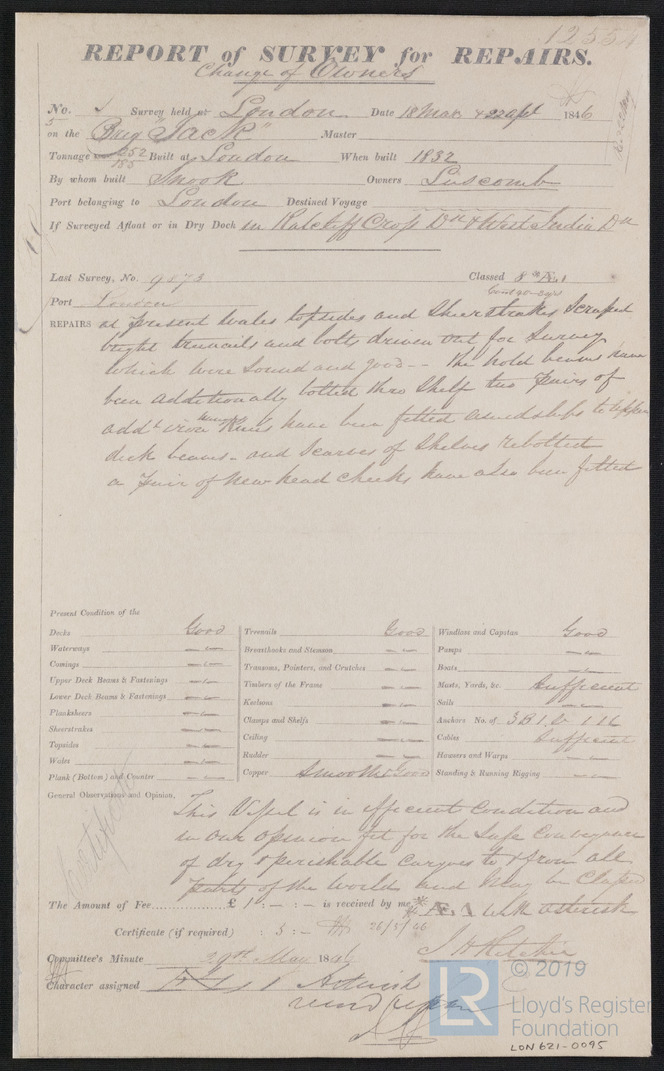 12554
REPORT of SURVEY for REPAIRS.
Change of Owners
No. Survey held at London Date 18 Mar & 22 Apl 1846
on the Brig "Jack" Master
Tonnage 252 Built at London When built 1832
185
By whom built Snook Owners Luscomb
Port belonging to London Destined Voyage
If Surveyed Afloat or in Dry Dock in Ratcliff Cross Dk & West India Dk
Last Survey, No. 9073 Classed 8 Æ 1
Port London
REPAIRS at present Wales topsides and Sheerstrakes Scraped
bright treenails and bolts driven out for Survey
which were Sound and good -- The hold beams have
been additionally bolted thro Shelf two pairs of
addl iron Knees have been fitted amidships to upper
deck beams - and Scarves of Shelves rebolted
a pair of New head cheeks have also been fitted
Present Condition of the
Decks Good
Waterways -"-
Comings -"-
Upper Deck Beams & Fastenings -"-
Lower Deck Beams & Fastenings -"-
Planksheers -"-
Sheerstrakes -"-
Topsides -"-
Wales -"-
Plank (Bottom) and Counter -"-
Treenails Good
Breasthooks and Stemson -"-
Transoms, Pointers, and Crutches -"-
Timbers of the Frame -"-
Keelsons -"-
Clamps and Shelfs -"-
Ceiling -"-
Rudder -"-
Copper Smooth & Good
Windlass and Capstan Good
Pumps -"-
Boats -"-
Masts, Yards, &c. Sufficient
Sails -"-
Anchors No. of 3 B 1 S 1 K
Cables Sufficient
Hawsers and Warps -"-
Standing & Running Rigging -"-
General Observations and Opinion,
This Vessel is in efficient Condition and
in our opinion fit for the Safe Conveyance
of dry & perishable cargoes to & from all
parts of the World and May be Classed
Æ 1 with asterisk
The Amount of Fee £ 1 : - : - is received by me,
Certificate (if required) : 5 : -
Committee's Minute 29th May 1846
Character assigned Æ 1 Asterisk
© 2019
LR
Lloyd's Register
Foundation
LON621-0095